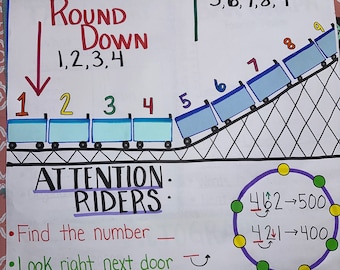 ROUND
DOWN
1, 2, 3, 4
5, 6, 7, 8, 9
1 2 3 4 5 6 7 8 9
ATTENTION
RIDERS:
• Find the number _
• Look right next door
462→500
421→400